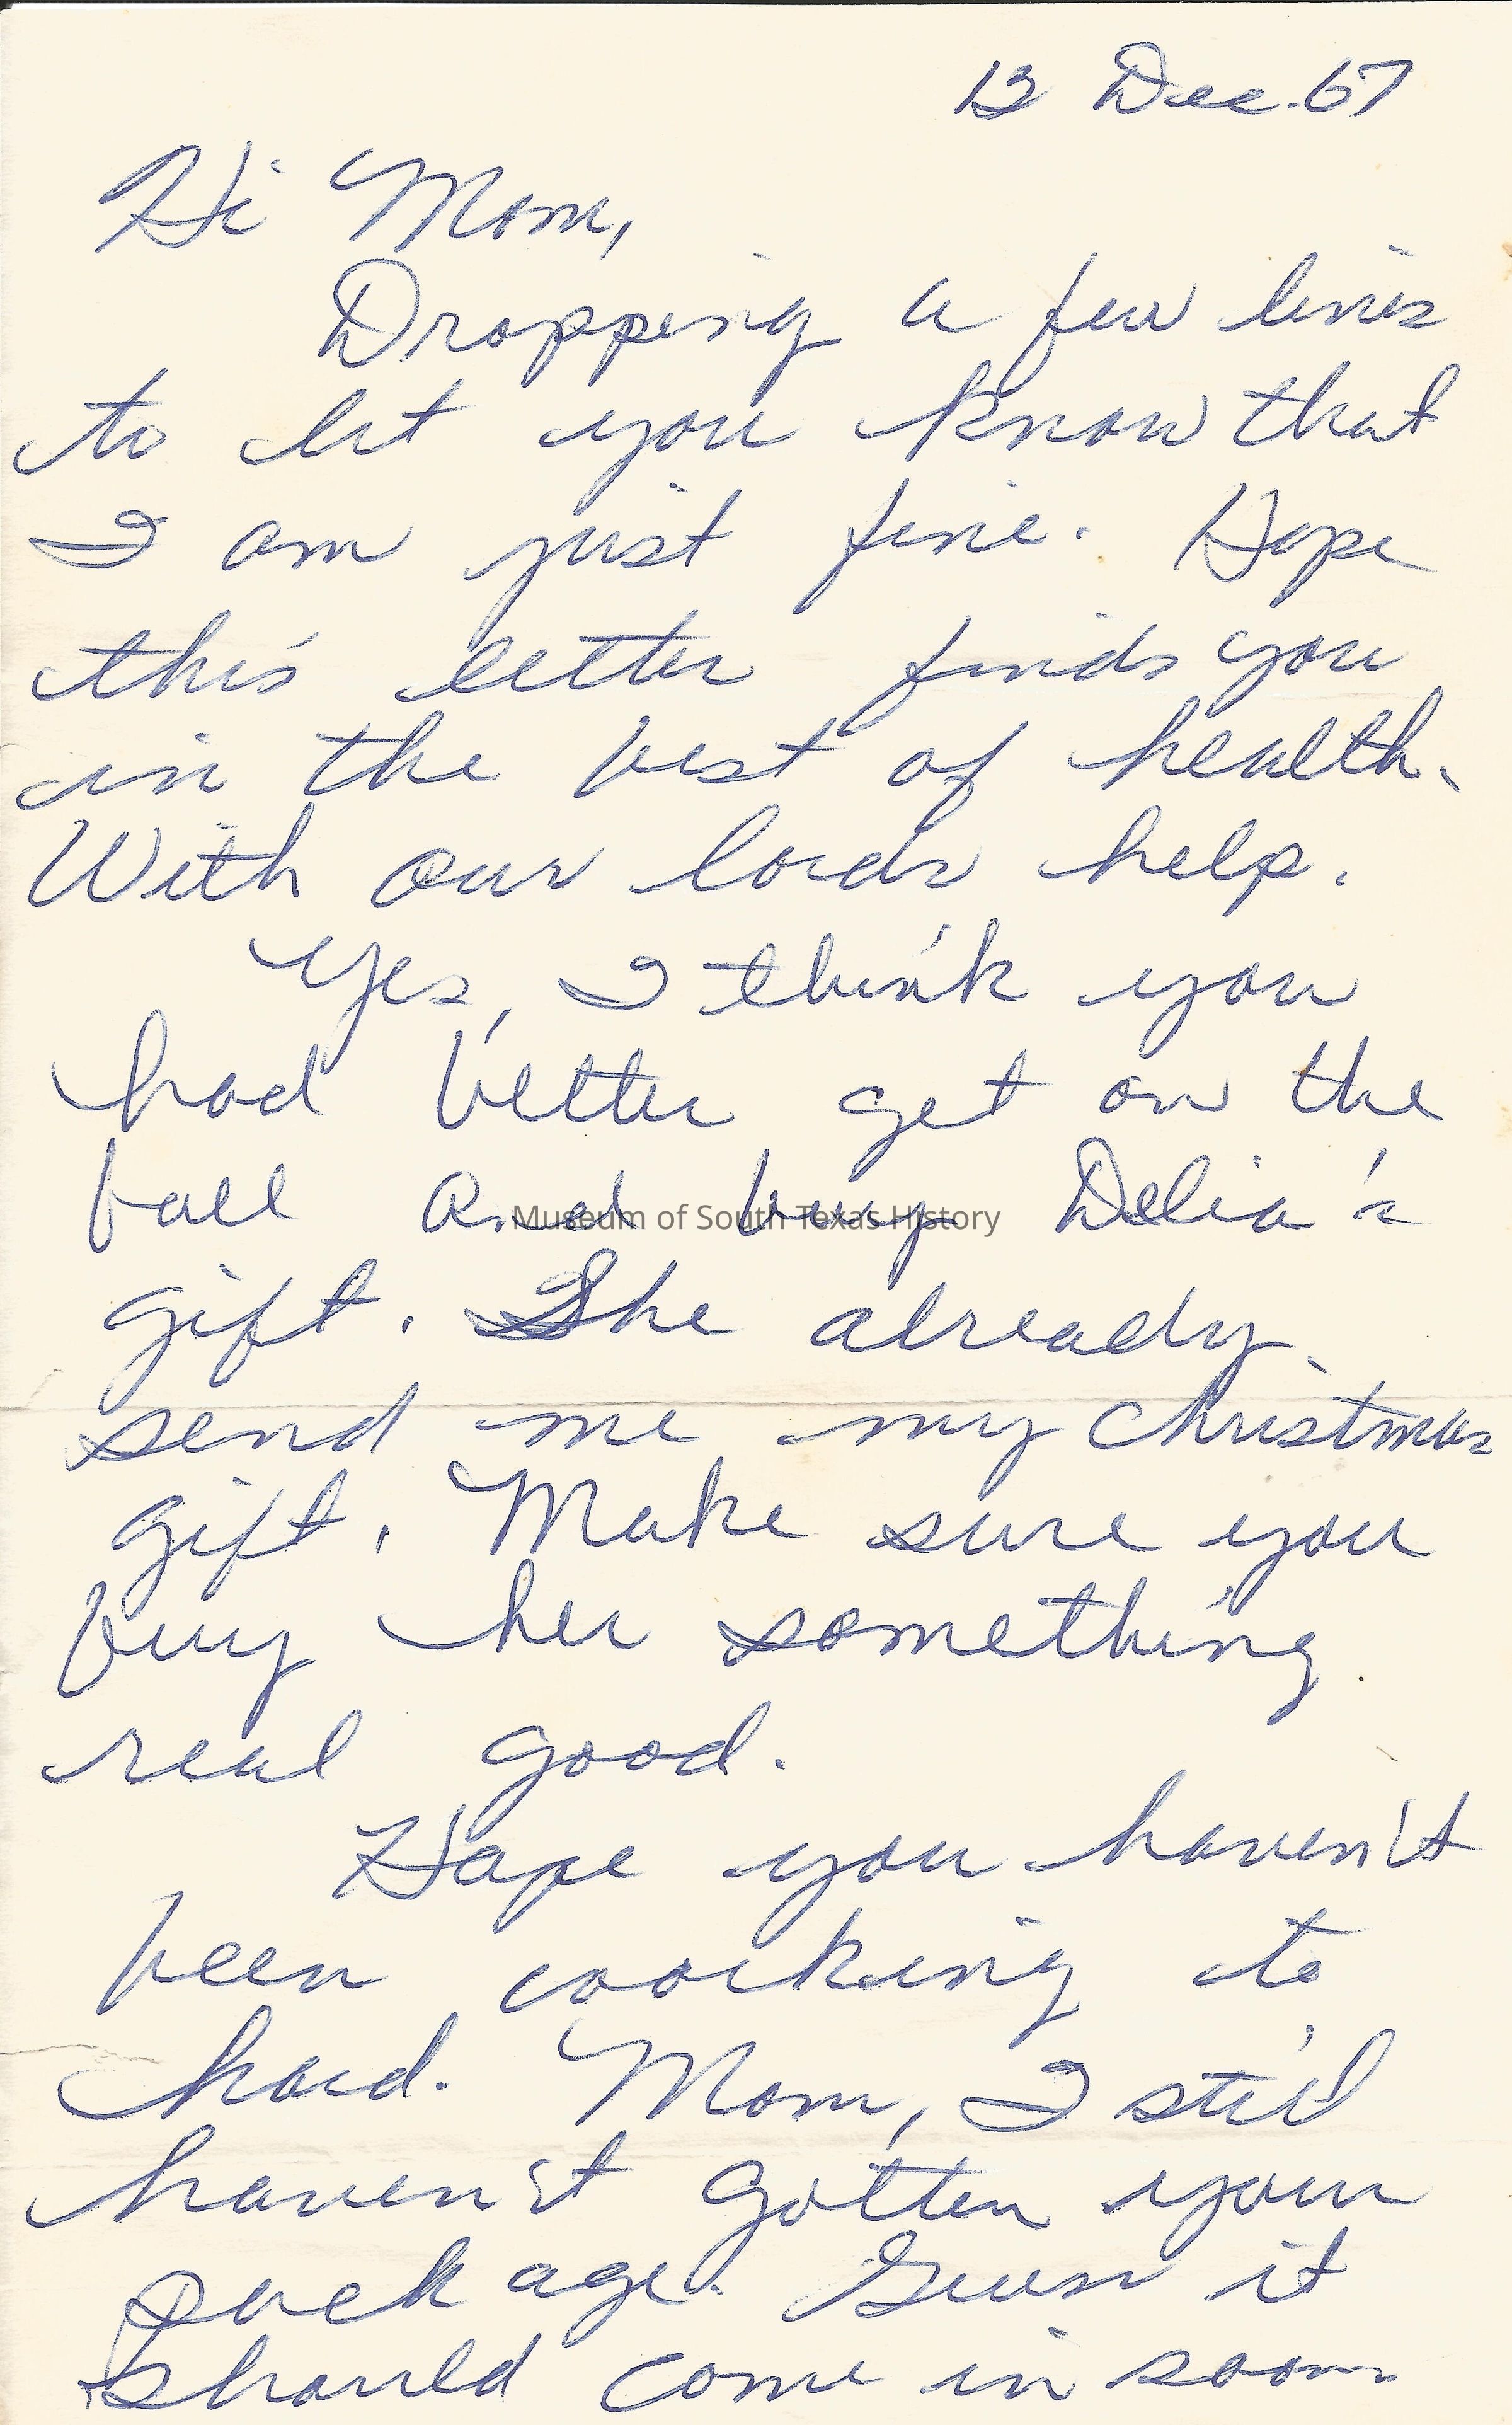 13 Dec. 67
Hi Mom,
Dropping a few lines
to let you know that
I am just fine. Hope
this letter finds you
in the best of health.
With our lords help.
Yes, I think you
had better get on the
ball and buy Delia's
Museum of South Texas History
gift. She already
send me my Christmas
gift. Make sure you
buy her something
real good.
Hope you haven't
been working to
hard. Mom, I still
haven't gotten your
package. Guess it
should come in soon.